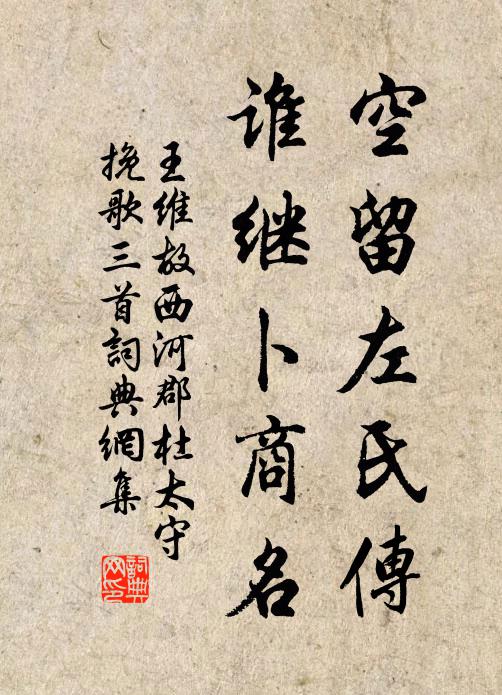 空留左氏傳
谁继卜商名
王维故西河郡杜太守
挽歌三首詞典網集
詞典网印